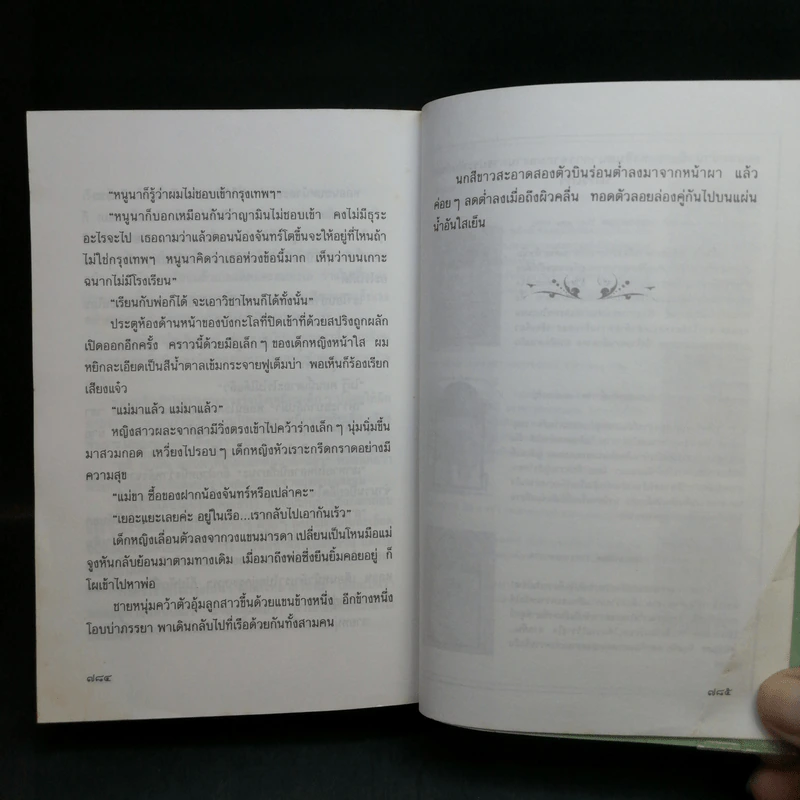 "หนูนาก็รู้ว่าผมไม่ชอบเข้ากรุงเทพๆ"
"หนูนาก็บอกเหมือนกันว่าญามินไม่ชอบเข้า คงไม่มีธุระ
อะไรจะไป เธอถามว่าแล้วตอนน้องจันทร์โตขึ้นจะให้อยู่ที่ไหนถ้า
ไม่ใช่กรุงเทพๆ หนูนาคิดว่าเธอห่วงข้อนี้มาก เห็นว่าบนเกาะ
ฉนากไม่มีโรงเรียน"
"เรียนกับพ่อก็ได้ จะเอาวิชาไหนก็ได้ทั้งนั้น"
ประตูห้องด้านหน้าของบังกะโลที่ปิดเข้าที่ด้วยสปริงถูกผลัก
เปิดออกอีกครั้ง คราวนี้ด้วยมือเล็กๆ ของเด็กหญิงหน้าใส ผม
หยิกละเอียดเป็นสีน้ำตาลเข้มกระจายฟูเต็มบ่า พอเห็นก็ร้องเรียก
เสียงแจ๋ว
"แม่มาแล้ว แม่มาแล้ว"
หญิงสาวผละจากสามีวิ่งตรงเข้าไปคว้าร่างเล็กๆ นุ่มนิ่มขึ้น
มาสวมกอด เหวี่ยงไปรอบๆ เด็กหญิงหัวเราะกรีดกราดอย่างมี
ความสุข
"แม่ขา ซื้อของฝากน้องจันทร์หรือเปล่าคะ"
"เยอะแยะเลยค่ะ อยู่ในเรือ...เรากลับไปเอากันเร็ว"
เด็กหญิงเลื่อนตัวลงจากวงแขนมารดา เปลี่ยนเป็นโหนมือแม่
จูงหันกลับย้อนมาตามทางเดิม เมื่อมาถึงพ่อซึ่งยืนยิ้มคอยอยู่ ก็
โผเข้าไปหาพ่อ
ชายหนุ่มคว้าตัวอุ้มลูกสาวขึ้นด้วยแขนข้างหนึ่ง อีกข้างหนึ่ง
โอบบ่าภรรยา พาเดินกลับไปที่เรือด้วยกันทั้งสามคน
๗๘๔
นกสีขาวสะอาดสองตัวบินร่อนต่ำลงมาจากหน้าผา แล้ว
ค่อยๆ ลดต่ำลงเมื่อถึงผิวคลื่น ทอดตัวลอยล่องคู่กันไปบนแผ่น
น้ำอันใสเย็น
๗๘๕